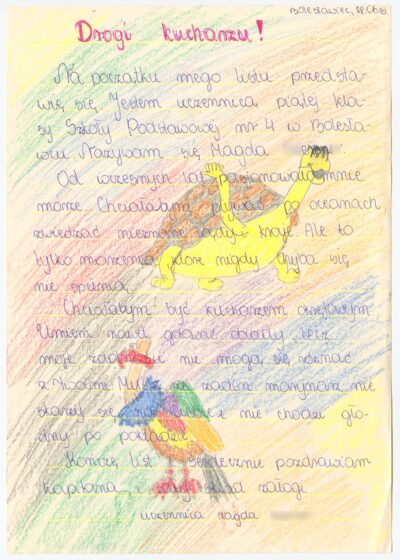 Bolesławiec,
Drogi kucharzu!
Na początku mego listu przedsta-
wię się. Jestem uczennicą piątej kla-
sy Szkoły Podstawowej nr 4 w Bolesła-
wcu. Nazywam się Magda
Od wczesnych lat pasjonowało mnie
morze. Chciałabym pływać po oceanach
zwiedzać nieznane lądy i kraje. Ale to
tylko marzenia, które nigdy chyba się
nie spełnią.
Chciałabym być kucharzem okrętowym
Umiem nawet gotować obiady, lecz
moje zdolności nie mogą się równać
z Twoimi. Myślę, że żaden marynarz nie
skarży się na Ciebie i nie chodzi gło-
dny po pokładzie.
Kończę list i serdecznie pozdrawiam
kapitana i skład załogi
uczennica Magda